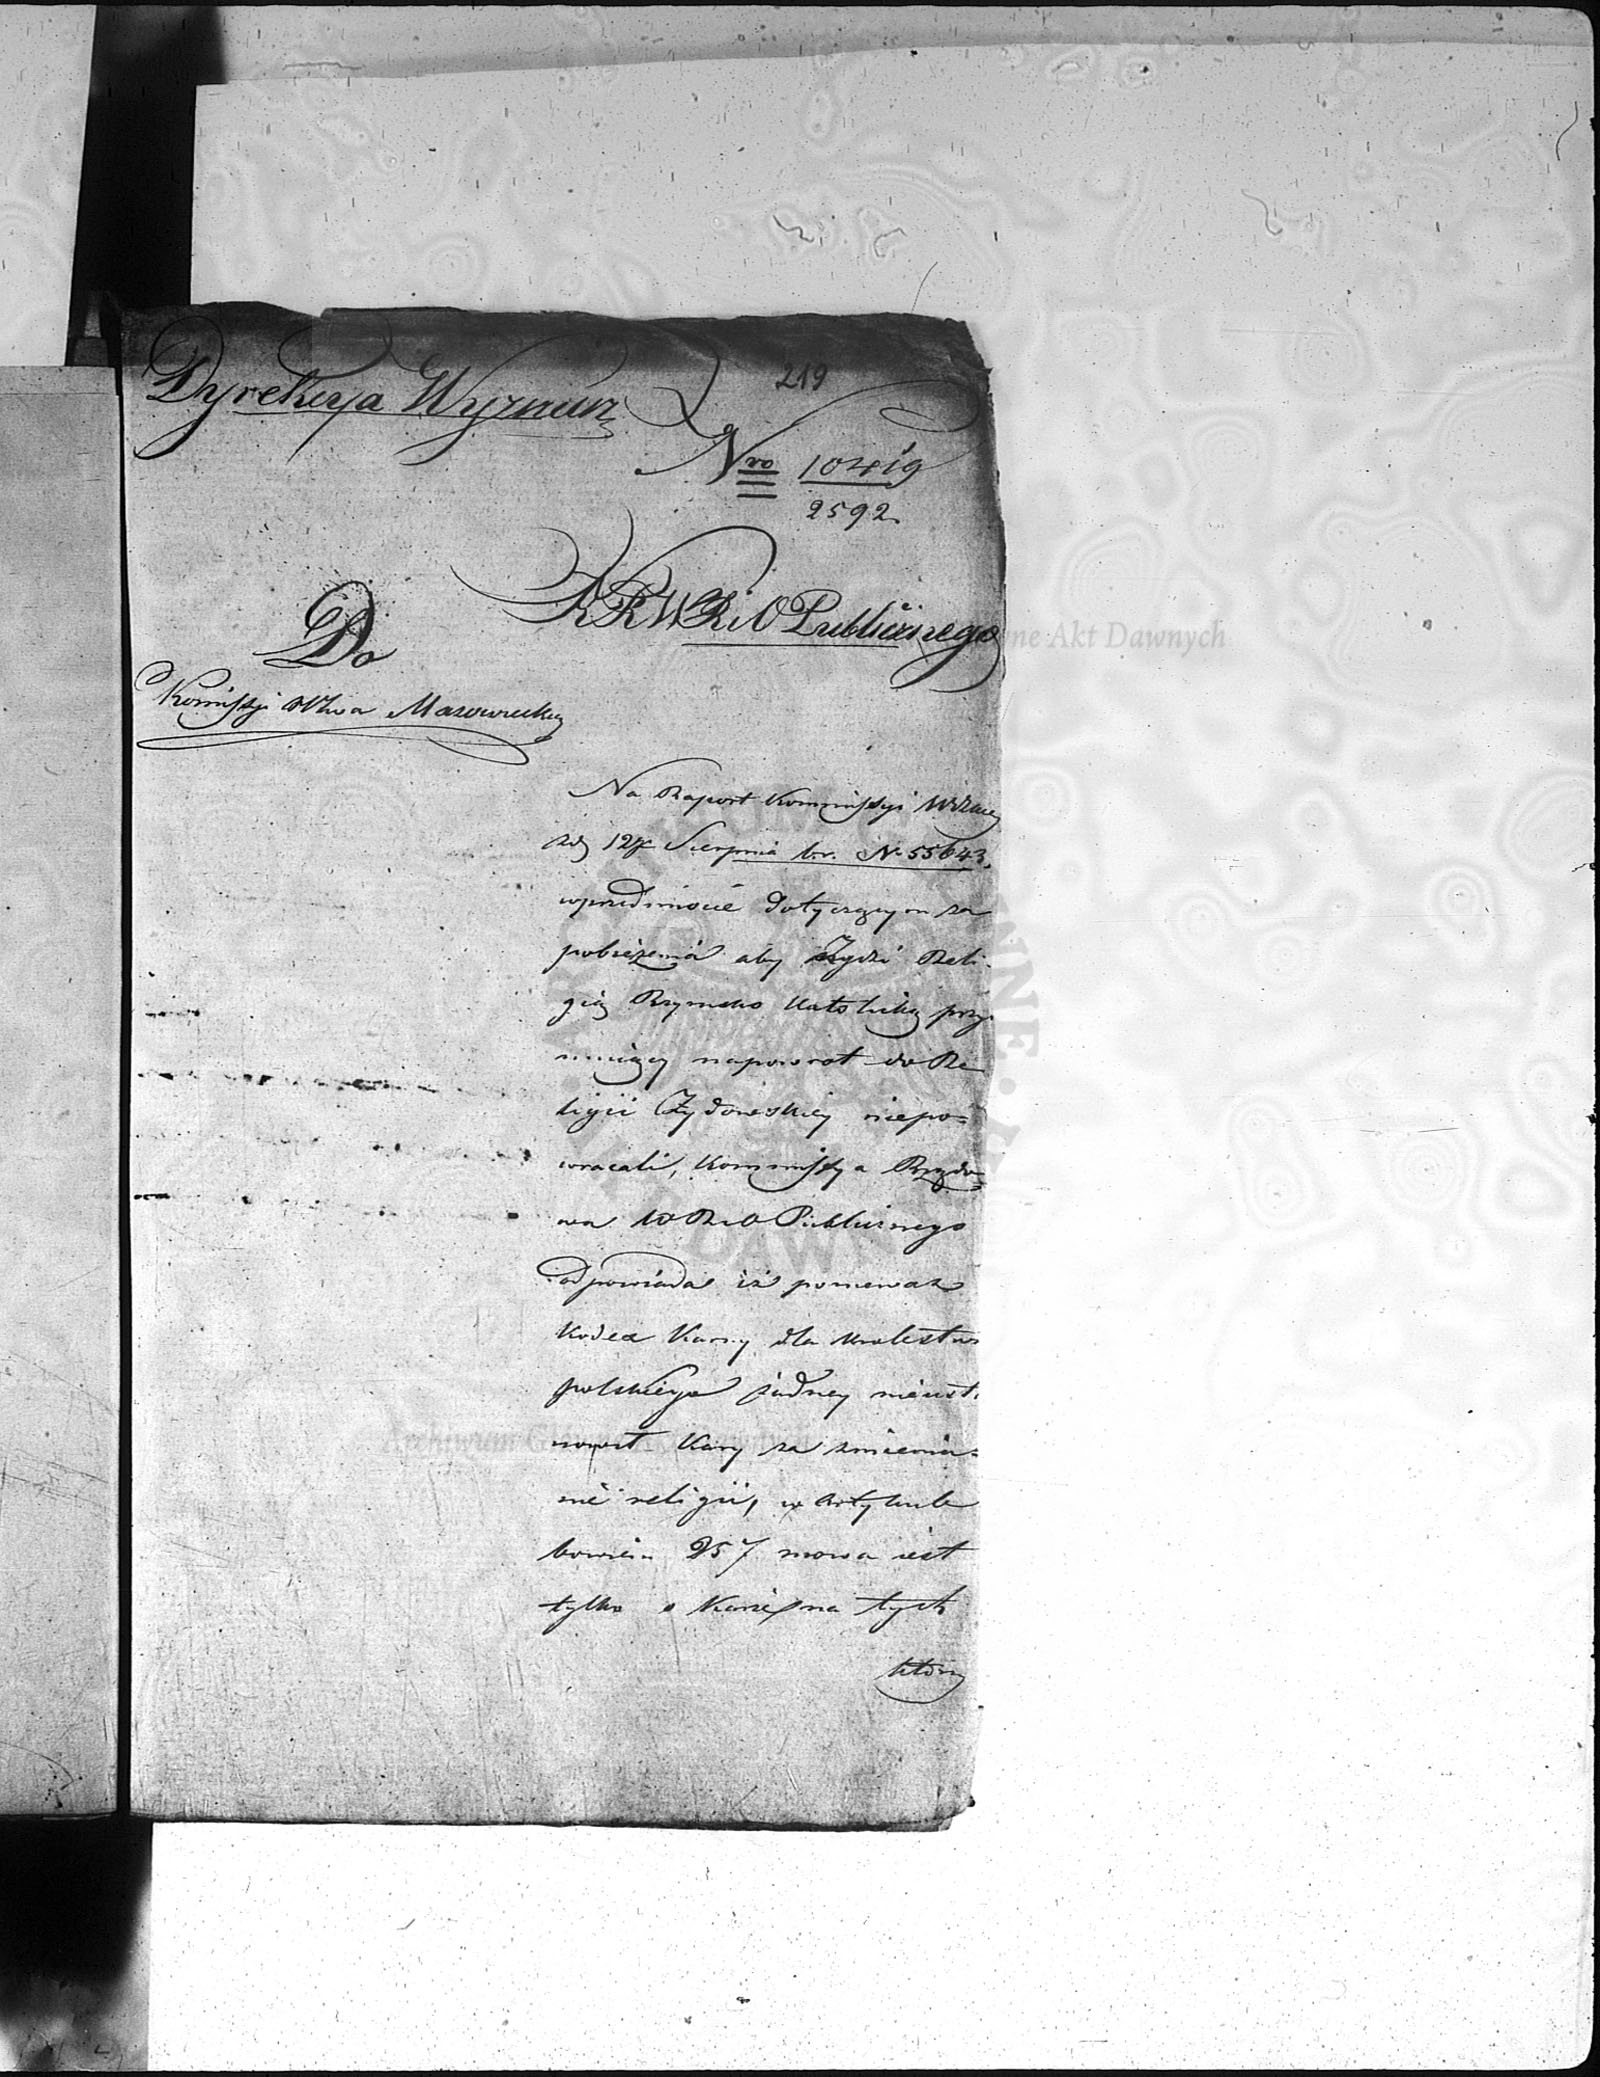 219
Dyrekcya Wyznań
Nro 10419
2592.
KRWRiOPublicznego
Do
Kommissyi Wztwa Mazowieckiego
Na Raport Kommissyi
z dg 12go Sierpnia b.r. N. 55643,
wprzedmiocie dotyczącym za
pobieżenia aby Żydzi Reli-
gią Rzymsko Katolicką przy
muiący napowrot do Re
ligii Żydowskiey niepo=
wracali, Kommissya Rządo
wa W R i O Publicznego
odpowiada iż poniewaz
Kodex Karny dla Krolestwa
polskiego żadney nieust
nowił Kary za zmienia=
nie religii, w Artykule
bowiem 257 mowa iest
tylko o Karze na tych
którzy
Archiwum Główne Akt Dawnych